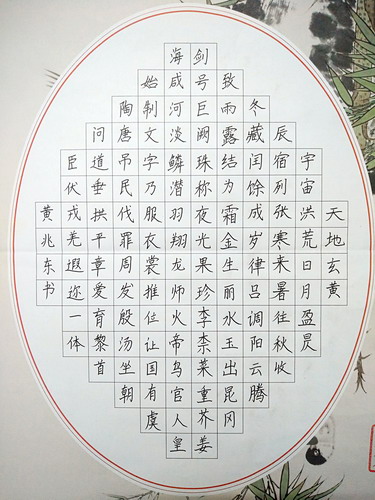 天地玄黄
宇宙洪荒日月盈昃
辰宿列张寒来暑往秋收
冬藏闰馀成岁律吕调阳云腾
致雨露结为霜金生丽水玉出昆冈
剑号巨阙珠称夜光果珍李柰菜重芥姜
海咸河淡鳞潜羽翔龙师火帝鸟官人皇
始制文字乃服衣裳推位让国有虞
陶唐吊民伐罪周发殷汤坐朝
问道垂拱平章爱育黎首
臣伏戎羌遐迩一体
黄兆东书